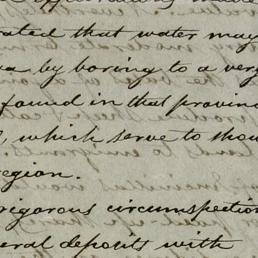 rated that water may
by boring to a very
found in that provin
, which serve to show
region.
rigorous circumspection
eral deposits with